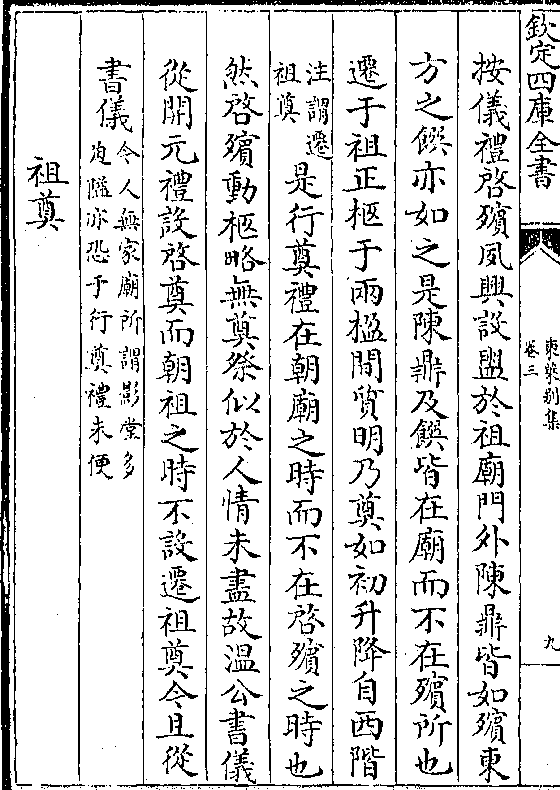 欽定四庫全書
東萊别集
卷三
九
按儀禮啓殯夙興設盥於祖廟門外陳鼎皆如殯東
方之饌亦如之是陳鼎及饌皆在廟而不在殯所也
遷于祖正柩于兩楹間質明乃奠如初升降自西階
注謂遷
祖奠
是行奠禮在朝廟之時而不在啓殯之時也
然啓殯動柩略無奠祭似於人情未盡故溫公書儀
從開元禮設啓奠而朝祖之時不設遷祖奠今且從
書儀
今人無家廟所謂影堂多
迫隘亦恐于行奠禮未便
祖奠